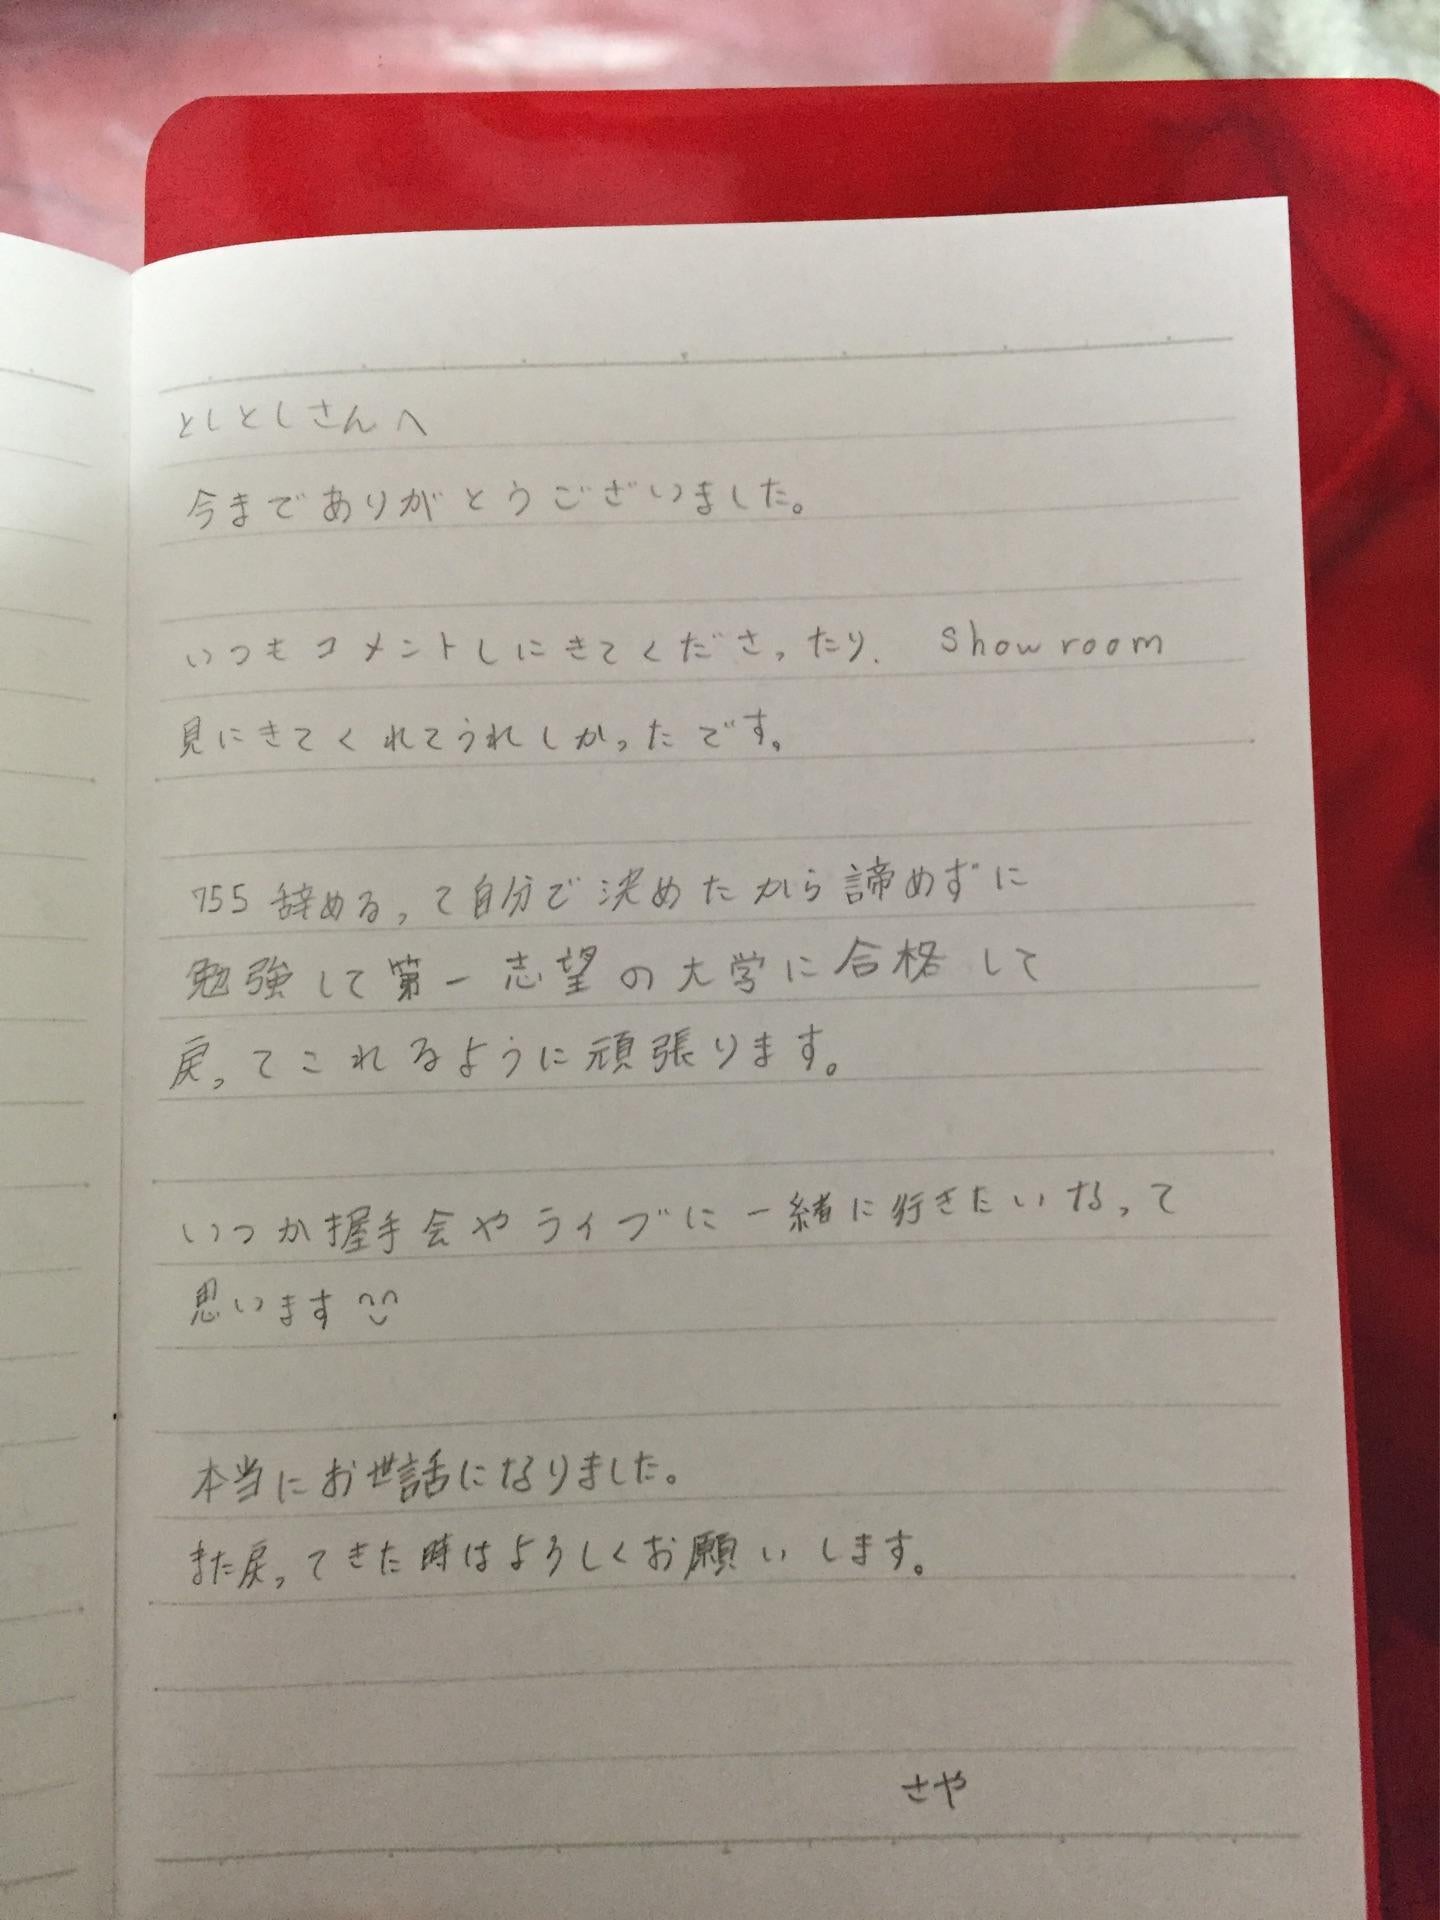 としとしさんへ
今までありがとうございました。
いつもコメントしにきてくださったり、 Showroom
見にきてくれてうれしかったです。
755 辞めるって自分で決めたから諦めずに
勉強して第一志望の大学に合格して
戻ってこれるように頑張ります。
いつか握手会やライブに一緒に行きたいなって
思います
本当にお世話になりました。
また戻ってきた時はよろしくお願いします。
さや